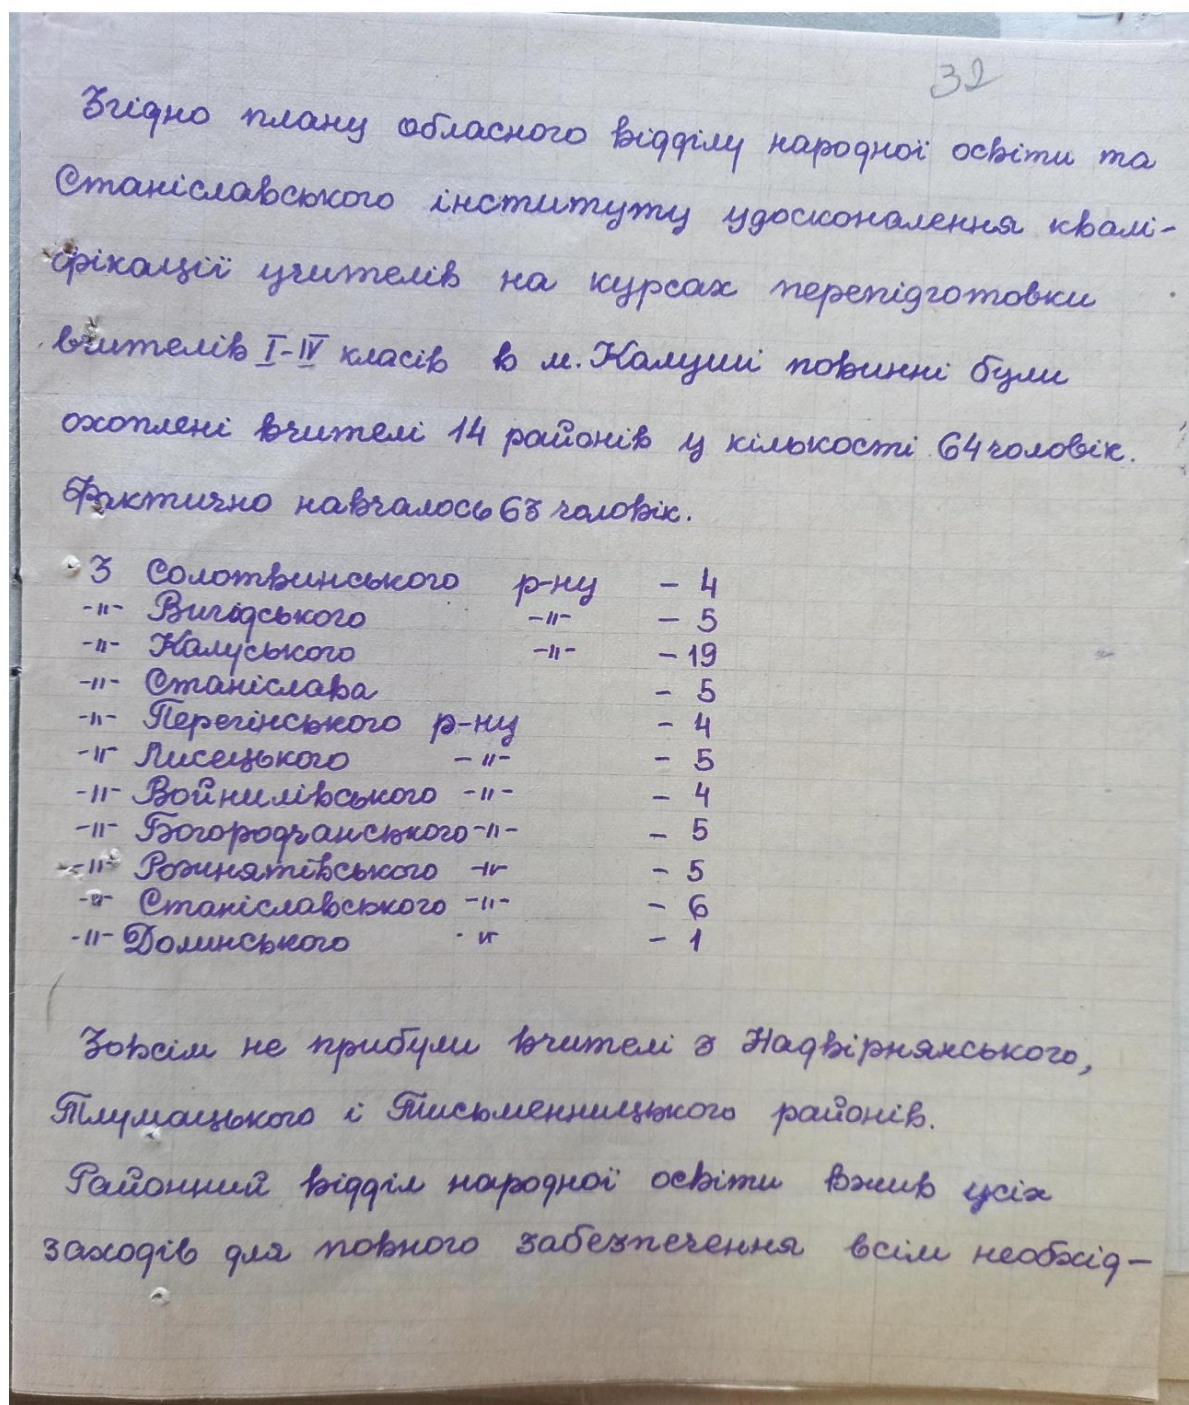 32
Згідно плану обласного відділу народної освіти та
Станіславського інституту удосконалення квалі-
фікації учителів на курсах перепідготовки
вчителів I-IV класів в м. Калуші повинні були
охоплені вчителі 14 районів у кількості 64 чоловік.
Фактично навчалось 63 чоловік.
З Солотвинського р-ну - 4
-"- Вигодського -"- - 5
-"- Калуського -"- - 19
-"- Станіслава - 5
-"- Перегінського р-ну - 4
-"- Лисецького -"- - 5
-"- Войнилівського -"- - 4
-"- Богородчанського -"- - 5
-"- Рожнятівського -"- - 5
-"- Станіславського -"- - 6
-"- Долинського -"- - 1
Зовсім не прибули вчителі з Надвірнянського,
Тлумацького і Тисьменницького районів.
Районний відділ народної освіти вжив усіх
заходів для повного забезпечення всім необхід-